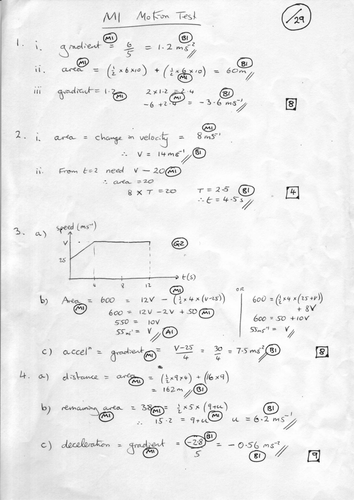 M1 Motion Test
/29
1. i. gradient = 6/5 = 1.2 ms⁻² M1 B1
ii. area = (½ × 6 × 10) + (½ × 6 × 10) = 60m M1 B1
iii gradient = 1.2 M1 2 × 1.2 = 2.4 B1
-6 + 2.4 = -3.6 ms⁻¹ M1 B1
8
2. i. area = change in velocity = 8 ms⁻¹ M1
∴ V = 14 ms⁻¹ B1
ii. From t=2 need V - 20 M1
∴ area = 20
8 × T = 20 T = 2.5 B1
∴ t = 4.5s
4
3. a) speed (ms⁻¹) G2
V
25
4 8 12 t(s)
b) Area = 600 = 12V - (½ × 4 × (V-25)) M1 M1
600 = 12V - 2V + 50 M1
550 = 10V
55 ms⁻¹ = V A1
OR
600 = (½ × 4 × (25+V)) + 8V
600 = 50 + 10V
55 ms⁻¹ = V
c) accelⁿ = gradient = V-25/4 = 30/4 = 7.5 ms⁻² M1 B1
8
4. a) distance = area = (½ × 9 × 4) + (16 × 9) M1 M1
= 162m B1
b) remaining area = 38 = ½ × 5 × (9+u) M1 M1
∴ 15.2 = 9+u u = 6.2 ms⁻¹ M1 B1
c) deceleration = gradient = -2.8/5 = -0.56 ms⁻² M1 B1 B1
9